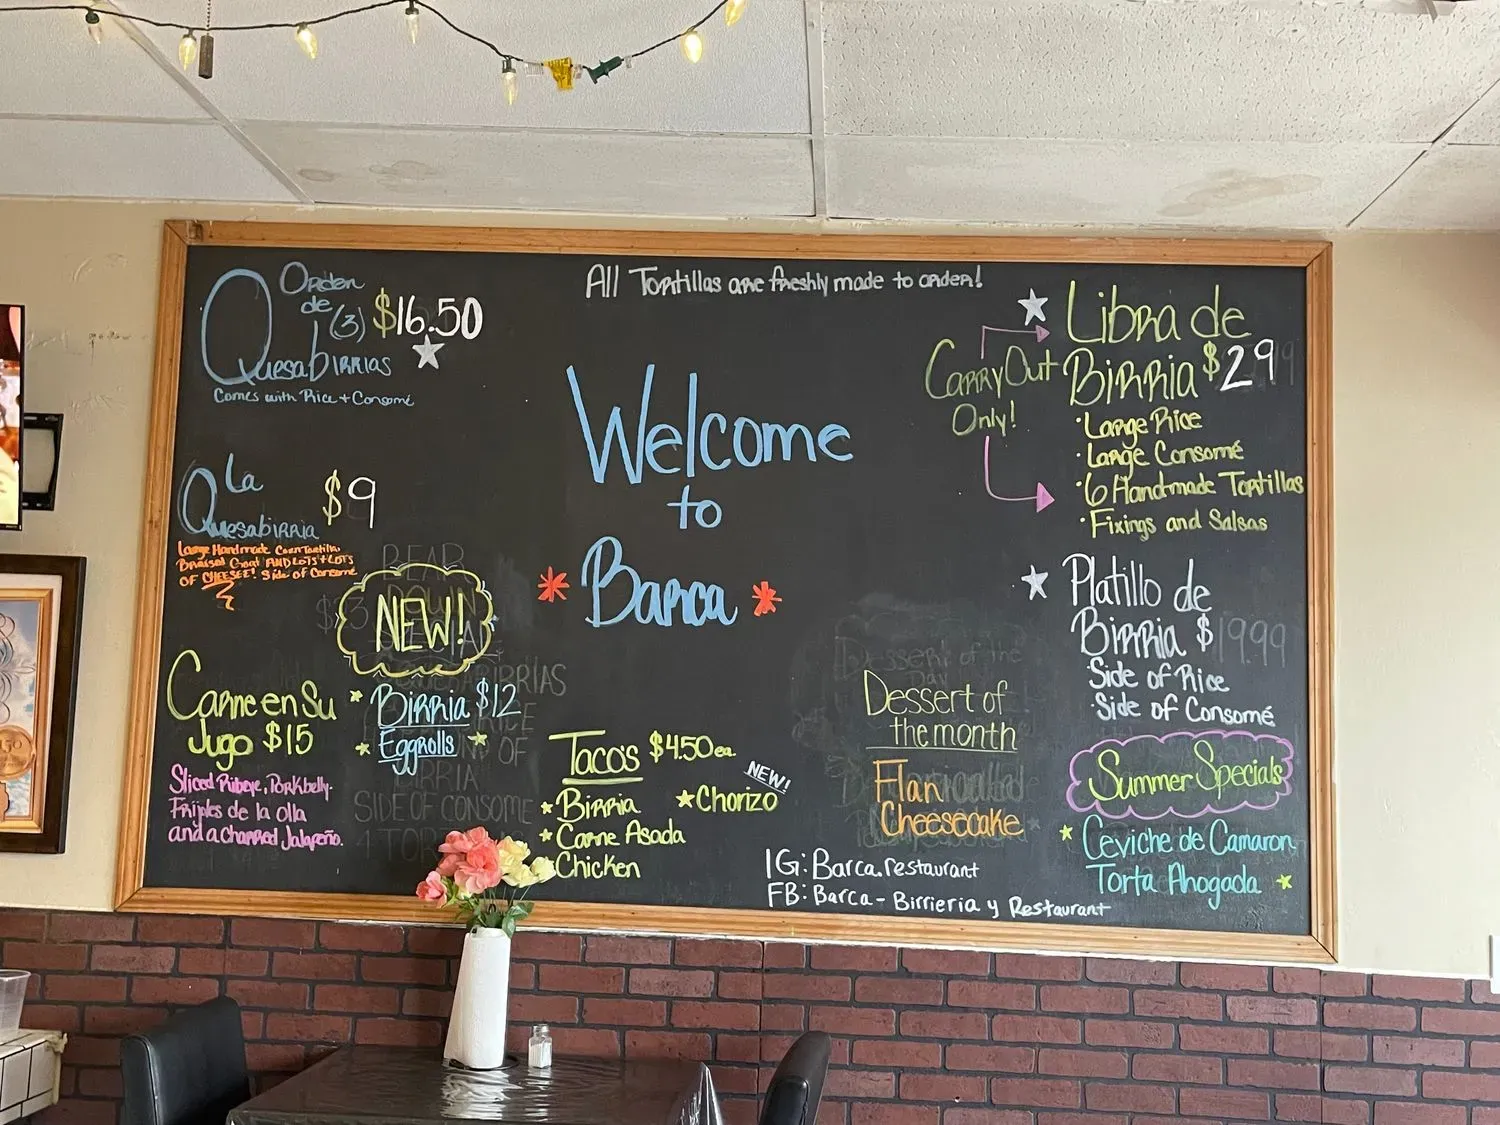 All Tortillas are freshly made to order!
Orden
de
(3) $16.50
Quesabirrias
Comes with Rice + Consomé
La
Quesabirria $9
Large Handmade Corn Tortilla
Braised Goat AND LOTS + LOTS
OF CHEESE! Side of Consomé
NEW!
Carne en Su
Jugo $15
Sliced Ribeye, Porkbelly.
Frijoles de la olla
and a charred Jalapeño.
Birria $12
Eggrolls
Welcome
to
* Barca *
Tacos $4.50 ea.
Birria
Carne Asada
Chicken
NEW!
Chorizo
Dessert of
the month
Flan
Cheesecake
IG: Barca.restaurant
FB: Barca - Birrieria y Restaurant
Carry Out
Only!
Libra de
Birria $29
·Large Rice
·Large Consomé
·6 Handmade Tortillas
·Fixings and Salsas
Platillo de
Birria $19.99
·Side of Rice
·Side of Consomé
Summer Specials
Ceviche de Camaron
Torta Ahogada
BEAR
DOWN
SIDE OF CONSOME